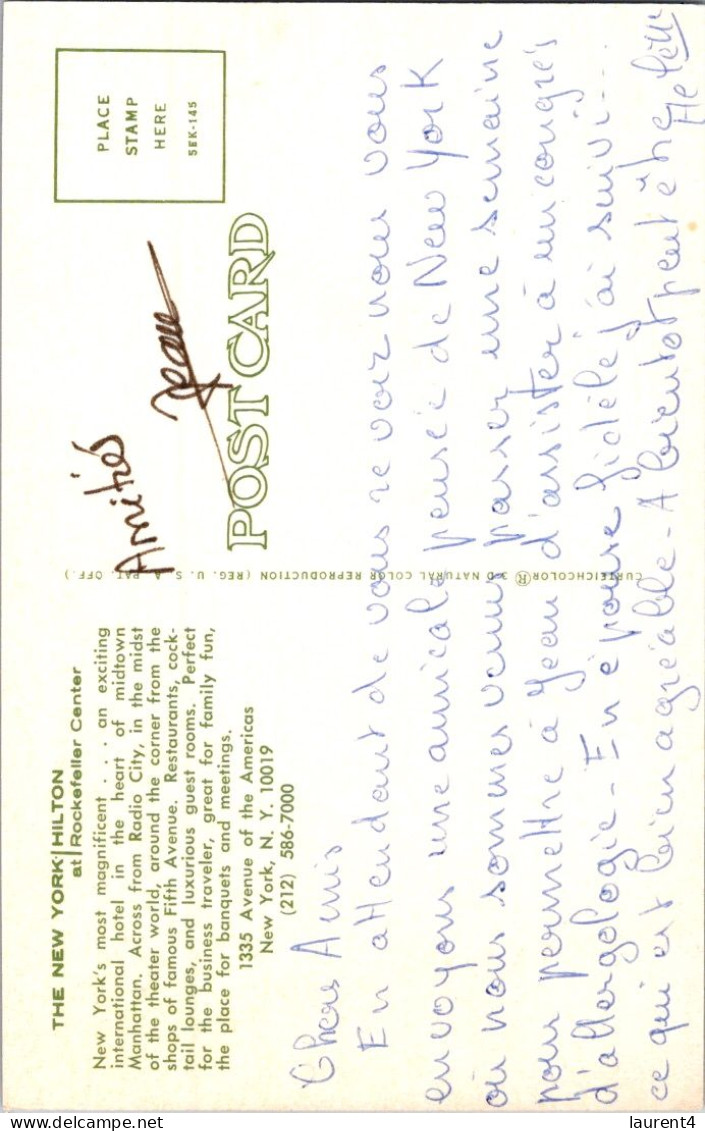 THE NEW YORK HILTON
at Rockefeller Center
New York's most magnificent . . . an exciting
international hotel in the heart of midtown
Manhattan. Across from Radio City, in the midst
of the theater world, around the corner from the
shops of famous Fifth Avenue. Restaurants, cock-
tail lounges, and luxurious guest rooms. Perfect
for the business traveler, great for family fun,
the place for banquets and meetings.
1335 Avenue of the Americas
New York, N. Y. 10019
(212) 586-7000
CURTEICHCOLOR® 3-D NATURAL COLOR REPRODUCTION (REG. U. S. A. PAT. OFF.)
POST CARD
PLACE
STAMP
HERE
5EK-145
Amitiés
Jean
Chers Amis
En attendant de vous revoir nous vous
envoyons une amicale pensée de New York
où nous sommes venus passer une semaine
pour permettre à Jean d'assister à un congrés
d'allergologie - En épouse fidèle j'ai suivi...
ce qui est bien agréable - A bientot peut être
laurent4